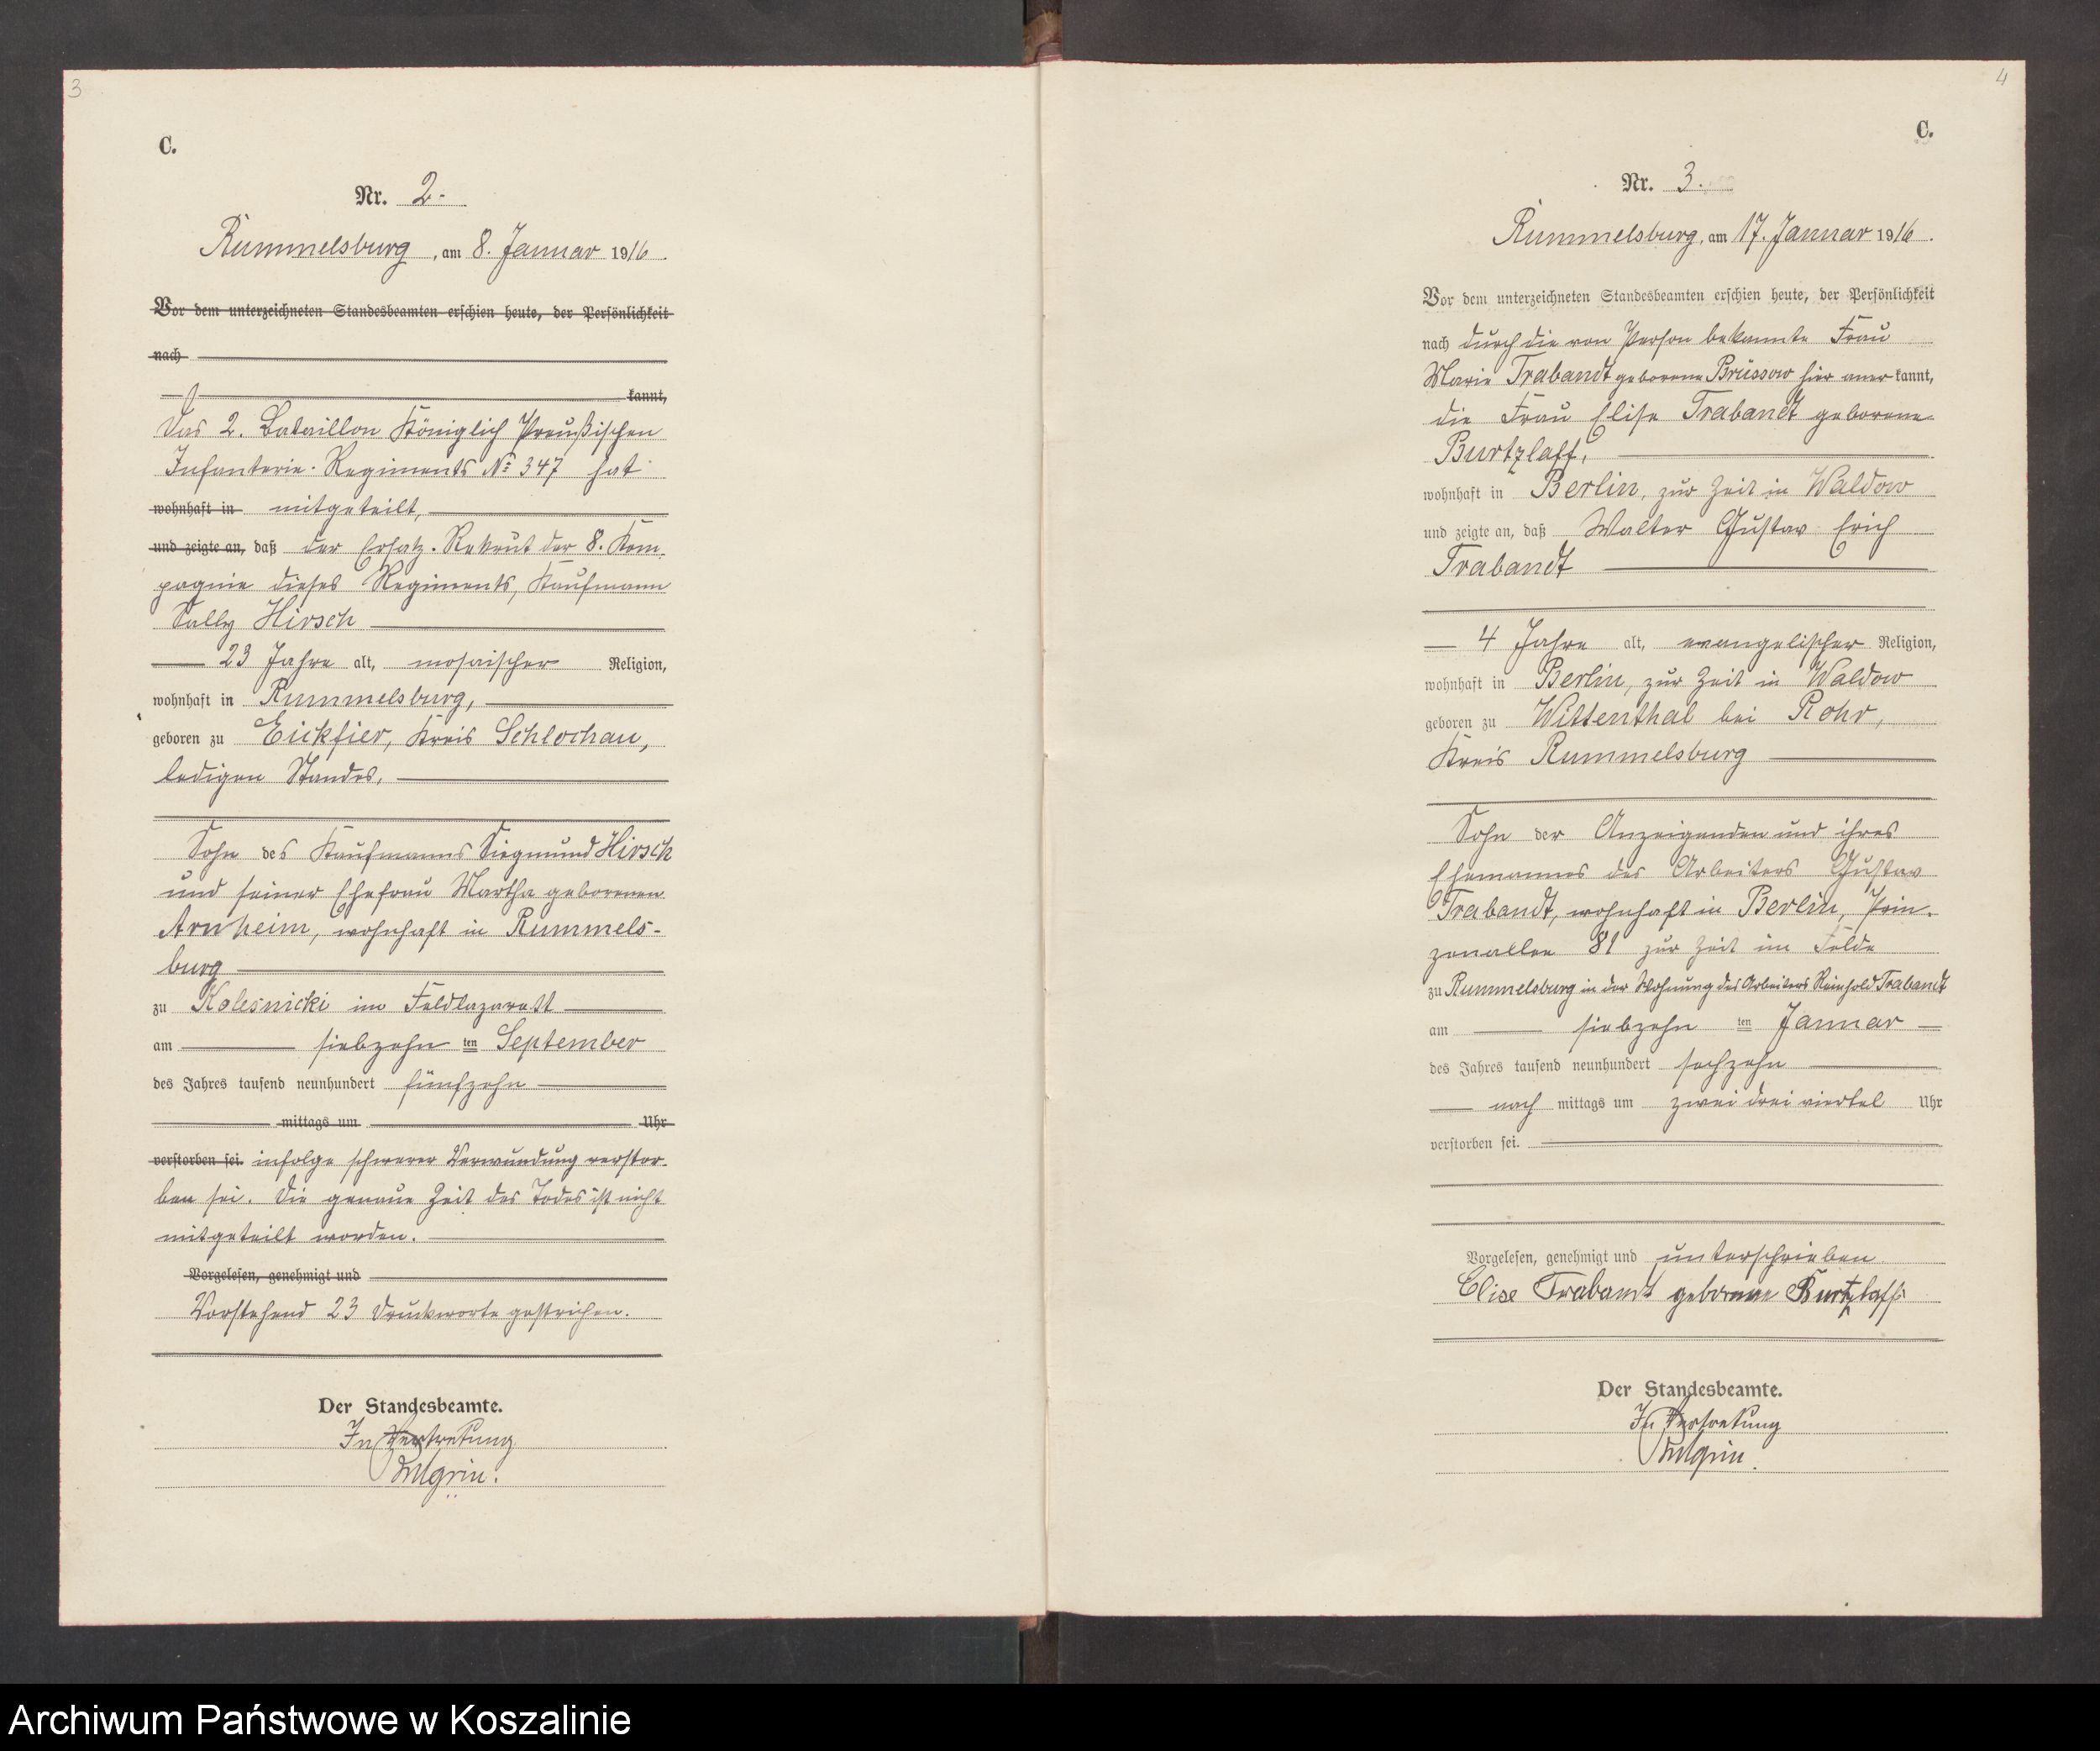 3
C.
Nr. 2.
Rummelsburg, am 8. Januar 1916.
Vor dem unterzeichneten Standesbeamten erschien heute, der Persönlichkeit
nach
kannt,
Das 2. Bataillon Königlich Preußischen
Infanterie-Regiments No 347 hat
wohnhaft in mitgeteilt,
und zeigte an, daß der Ersatz-Rekrut der 8. Kom-
pagnie dieses Regiments, Kaufmann
Sally Hirsch
23 Jahre alt, mosaischer Religion,
wohnhaft in Rummelsburg,
geboren zu Eickfier, Kreis Schlochau,
ledigen Standes,
Sohn des Kaufmanns Siegmund Hirsch
und seiner Ehefrau Martha geborenen
Arnheim, wohnhaft in Rummels-
burg
zu Kolesnicki im Feldlazarett
am siebzehn ten September
des Jahres tausend neunhundert fünfzehn
mittags um Uhr
verstorben sei. infolge schwerer Verwundung verstor-
ben sei. Die genaue Zeit des Todes ist nicht
mitgeteilt worden.
Vorgelesen, genehmigt und
Vorstehend 23 Druckworte gestrichen.
Der Standesbeamte.
In Vertretung
4
C.
Nr. 3.
Rummelsburg, am 17. Januar 1916.
Vor dem unterzeichneten Standesbeamten erschien heute, der Persönlichkeit
nach durch die von Person bekannte Frau
Marie Trabandt geborene Brüssow hier aner kannt,
die Frau Elise Trabandt geborene
Burtzlaff,
wohnhaft in Berlin, zur Zeit in Waldow
und zeigte an, daß Walter Gustav Erich
Trabandt
4 Jahre alt, evangelischer Religion,
wohnhaft in Berlin, zur Zeit in Waldow
geboren zu Wittenthal bei Rohr,
Kreis Rummelsburg
Sohn der Anzeigenden und ihres
Ehemannes des Arbeiters Gustav
Trabandt, wohnhaft in Berlin, Prin-
zenallee 81 zur Zeit im Felde
zu Rummelsburg in der Wohnung des Arbeiters Reinhold Trabandt
am siebzehn ten Januar
des Jahres tausend neunhundert sechzehn
nach mittags um zwei drei viertel Uhr
verstorben sei.
Vorgelesen, genehmigt und unterschrieben
Elise Trabandt geborene Burtzlaff
Der Standesbeamte.
In Vertretung
Archiwum Państwowe w Koszalinie